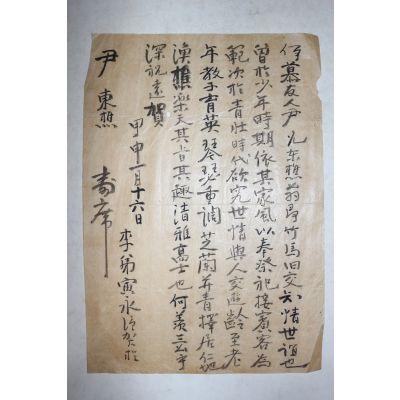 伊慕友人尹兄东樵翁即竹馬旧交知情世誼也
曾於少年時期依其家風以奉祭祀接賓客為
範次於青壮時代欲究世情與人交遊齡至老
年教子育英琴瑟重調芝蘭并青擇居仁地
漁樵楽天其旨其趣清雅高士也何羡三公乎
深祝遠賀
甲申一月十六日
李弟寅永賀於
尹東樵 寿席